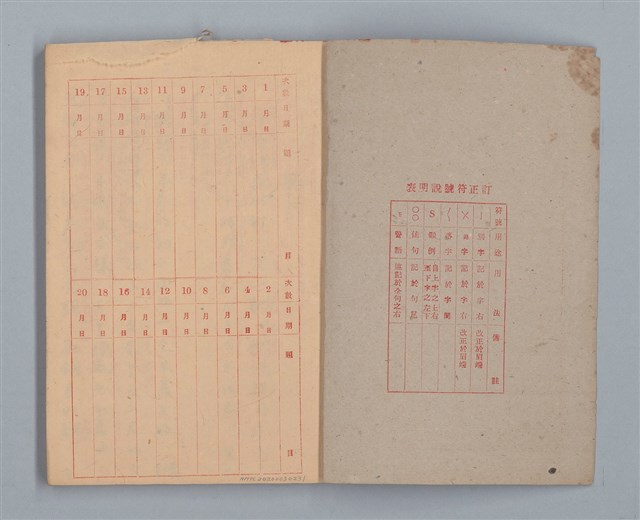 訂正符號說明表
符號 用途 備註
別字 記於字右 改正於眉端
誤字 記於字右 改正於眉端
落字 記於字間
S 顛倒 自上字之右至下字之左下
○○ 佳句 記於句尾
警語 連記於今句之右
次數 日期 題目
1 月 日
3 月 日
5 月 日
7 月 日
9 月 日
11 月 日
13 月 日
15 月 日
17 月 日
19 月 日
次數 日期 題目
2 月 日
4 月 日
6 月 日
8 月 日
10 月 日
12 月 日
14 月 日
16 月 日
18 月 日
20 月 日